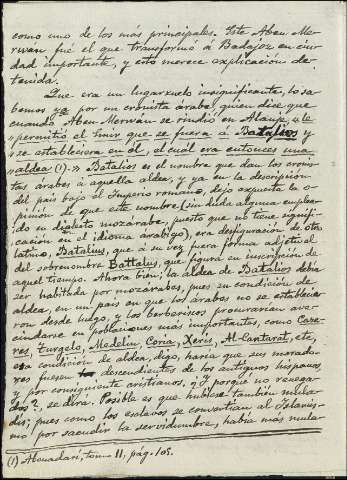 como uno de los más principales. Este Aben Mer-
wan fué el que transformó á Badajoz en ciu-
dad importante, y esto merece explicación de-
tenida.
Que era un lugarzuelo insignificante, lo sa-
bemos ya por un cronista árabe, quien dice que
cuando Aben Merwán se rindió en Alanje, «le
»permitió el Emir que se fuera á Batalios y
»se estableciera en él, el cuál era entonces una
»aldea (1).» Batalios es el nombre que dan los cronis-
tas árabes á aquella aldea, y ya en la descripción
del país bajo el Imperio romano, dejo expuesta la o-
pinión de que este nombre (sin duda alguna emplea-
do en dialecto mozárabe, puesto que no tiene signifi-
cación en el idioma arábigo), era desfiguración de otro
latino, Batalius, que á su vez fuera forma adjetival
del sobrenombre Battalus, que figura en inscripción de
aquel tiempo. Ahora bien; la aldea de Batalios debía
ser habitada por mozárabes, pues su condición de
aldea, en un país en que los árabes no se establecie-
ron desde luego, y los berberiscos procurarían ave-
cindarse en poblaciones más importantes, como Cace-
res, Turgelo, Medelin, Coria, Xeris, Al-Cantarat, etc,
esa condición de aldea, digo, haría que sus morado-
res fuesen descendientes de los antiguos hispanos,
y por consiguiente cristianos, ¿Y porqué no renega-
dos?, se dirá. Posible es que hubiese también mula-
díes; pues como los esclavos se convertían al Islamis-
mo por sacudir la servidumbre, había más mula-
(1) Abenadarí, tomo II, pág. 105.